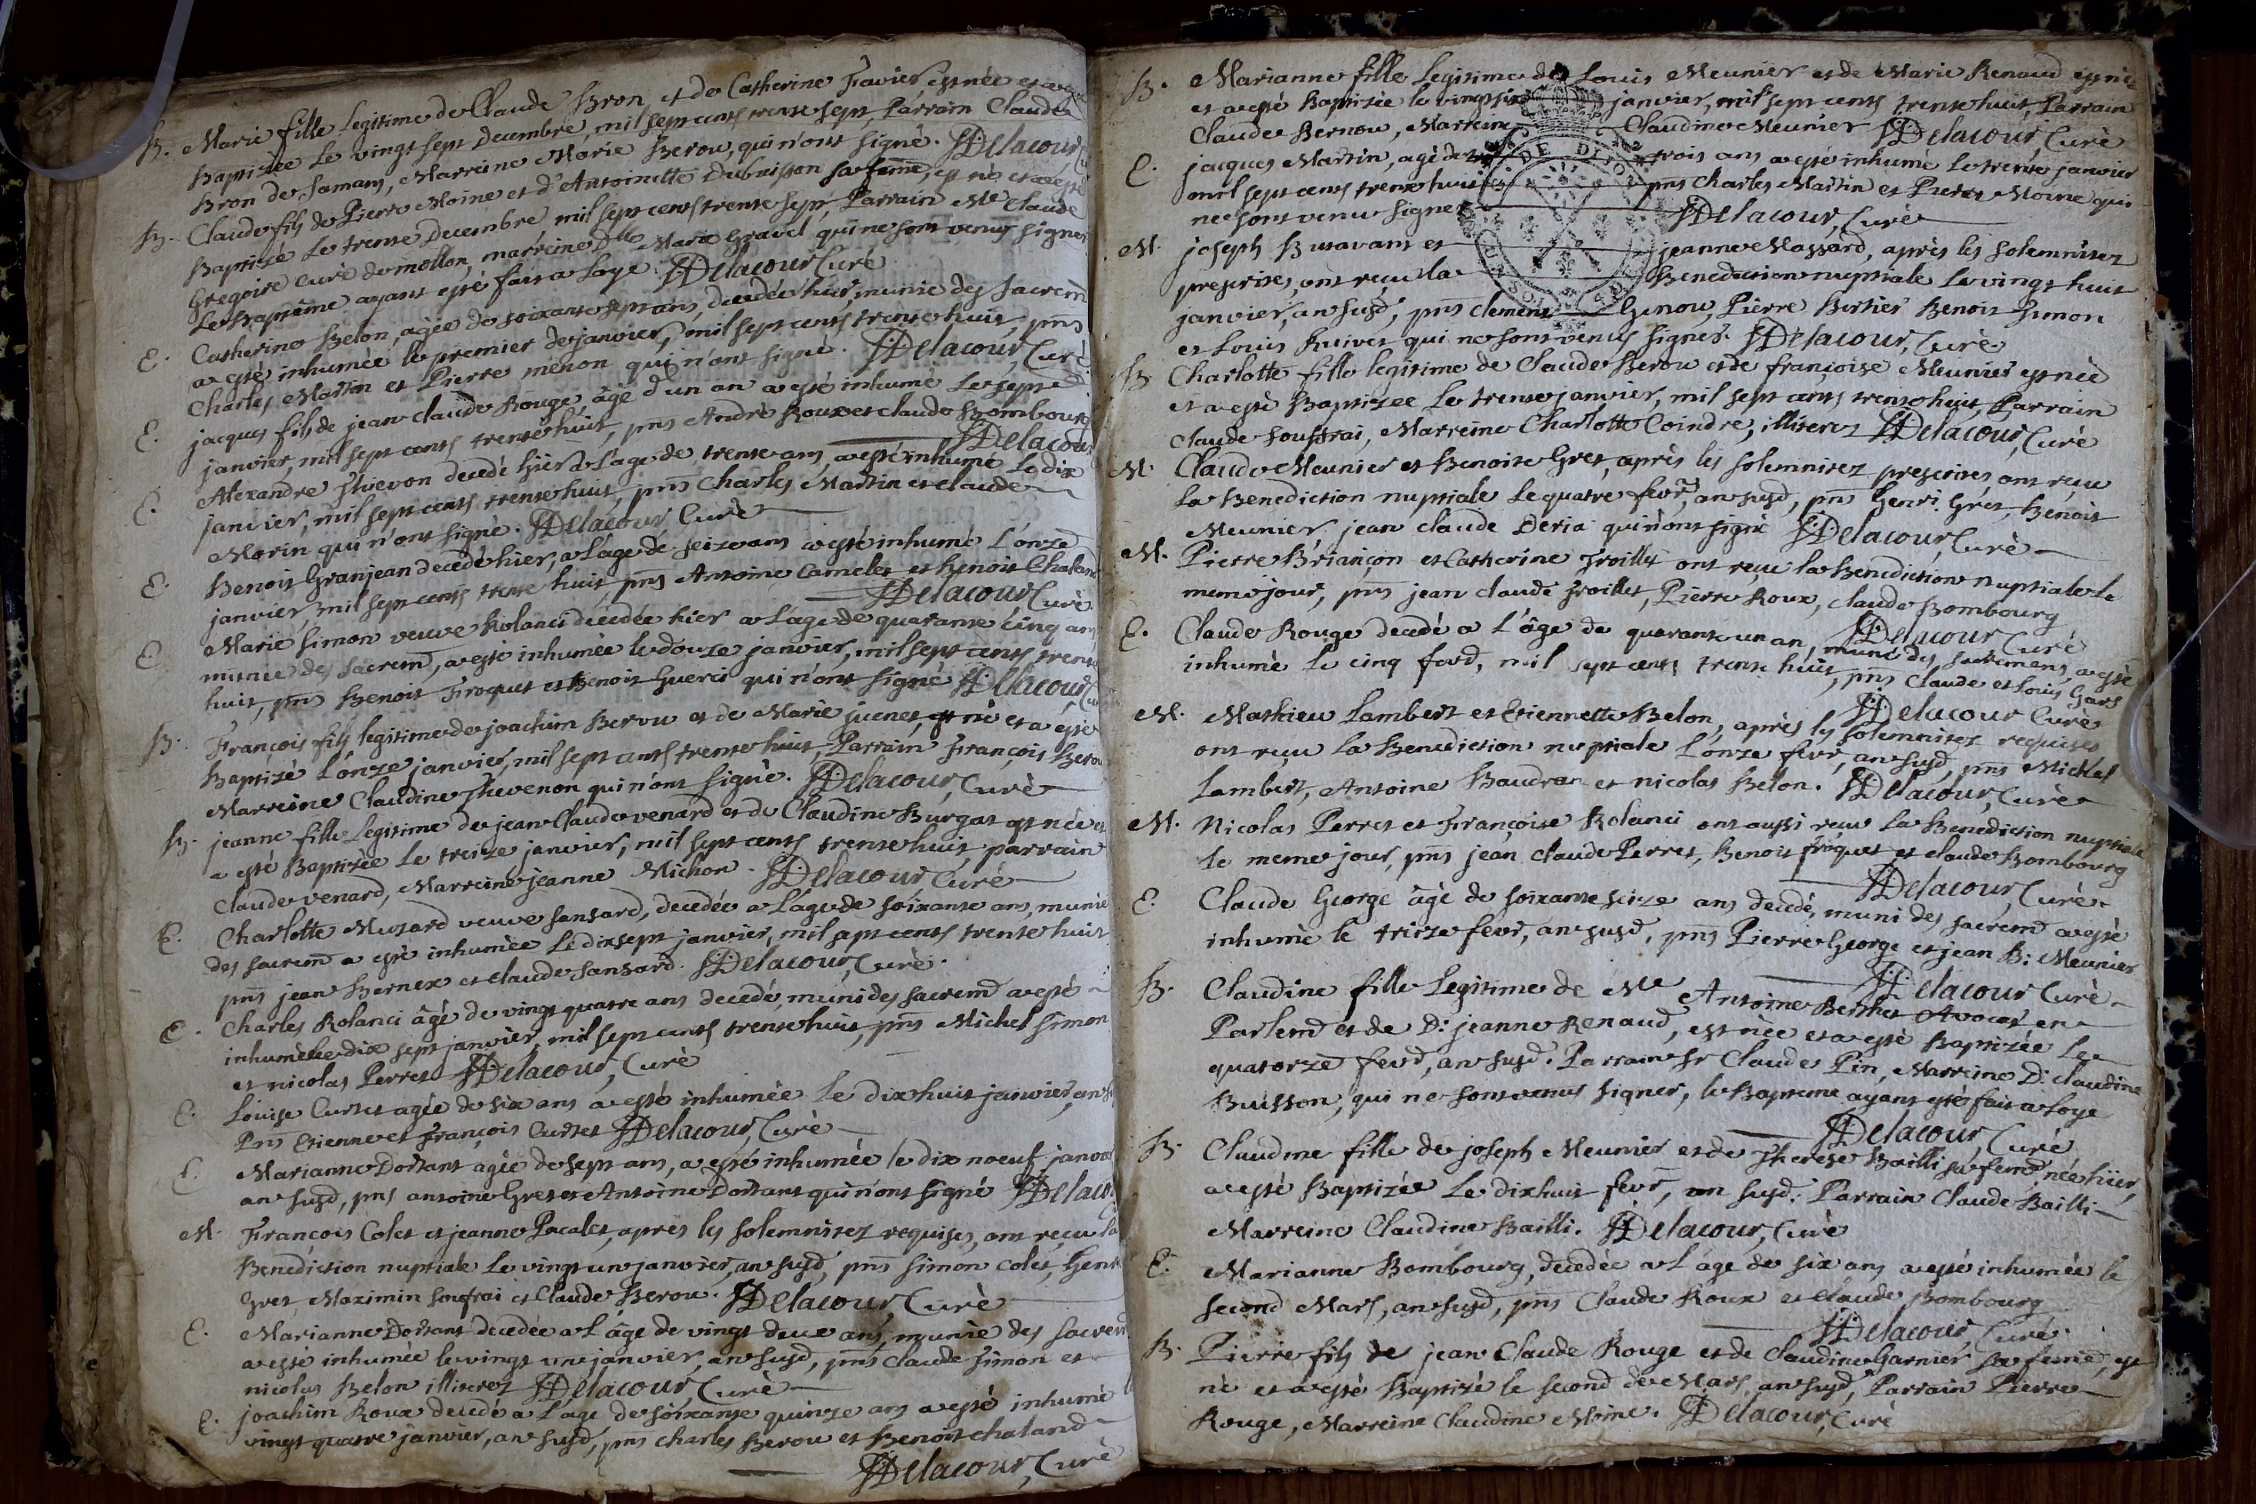 B. Marie fille Legitime de Claude Bron et de Catherine Favier, est née et a esté
Baptisée Le vingt sept Decembre, mil sept cents trente sept, Parrain Claude
Bron de Samans, Marreine Marie Berou, qui n'ont signé. Delacour
B. Claude fils de Pierre Moine et d'Antoinette Dubuisson sa feme, est né et a esté
Baptisé Le trente Decembre mil sept cents trente sept, Parrain Me Claude
Gregoire Curé de mollon, marreine Dlle Marie Gravel qui ne sont venus signer
Le Baptême ayant esté fait a Loye. Delacour Curé
E. Catherine Belon, agée de soixante sept ans, decedée hier, munie des sacrem
a esté inhumée le premier de janvier, mil sept cents trente huit, pns
Charles Martin et Pierre menon qui n'ont signé. Delacour, Curé
E. jacques fils de jean claude Rouge âgé d'un an a esté inhumé Le sept
janvier, mil sept cents trente huit, pns André Roux et claude Bombourg
Delacour
E. Alexandre Thevon decedé hier a L'age de trente ans, a esté inhumé Le dix
janvier, mil sept cents trente huit, pns Charles Martin et claude
Morin qui n'ont signé. Delacour Curé
E. Benoit Granjean decedé hier, a L'age de seize ans a esté inhumé L'onze
janvier, mil sept cents trente huit, pns Antoine Camelet et Benoit Chaland
Delacour Curé
E. Marie Simon veuve Rolanci decedée hier a L'age de quarante cinq ans
munie des sacrem, a esté inhumée le douze janvier, mil sept cents trente
huit, pns Benoit Froquet et Benoit Guerci qui n'ont signé Delacour, Cu
B. François fils legitime de joachim Berou et de Marie juenet, est né et a esté
Baptisé L'onze janvier, mil sept cents trente huit, Parrain François Berou
Marreine Claudine Thevenon qui n'ont signé. Delacour, Curé
B. jeanne fille Legitime de jean Claude venard et de Claudine Burgat est née et
a esté Baptisée Le treize janvier, mil sept cents trente huit, parrain
Claude venard, Marreine jeanne Michon. Delacour Curé
E. Charlotte Muzard veuve Sansard, decedée a L'age de soixante ans, munie
des sacrem a esté inhumée Le dix sept janvier, mil sept cents trente huit
pns jean Bernex et claude Sansard. Delacour, Curé.
E. Charles Rolanci âgé de vingt quatre ans decedé, muni des sacrem a esté
inhumé le dix sept janvier, mil sept cents trente huit, pns Michel Simon
et nicolas Perret Delacour, Curé
E. Louise Curtet agée de six ans a esté inhumée Le dix huit janvier, an s
Pns Etienne et François Curtet Delacour, Curé
E. Marianne Dortant agée de sept ans, a esté inhumée le dix noeuf janv
an susd, pns antoine Gret et Antoine Dortant qui n'ont signé Delaco
M. François Colet et jeanne Pacalet, apres les solemnitez requises, ont reçu La
Benediction nuptiale Le vingt un janvier, an susd, pns Simon colet, Henri
Gret, Maximin Soufrai et Claude Berou. Delacour Curé
E. Marianne Dortant decedée a L'âge de vingt deux ans, munie des sacrem
a esté inhumée le vingt un janvier, an susd, pns claude Simon et
nicolas Belon illiterez Delacour, Curé
E. joachim Roux decedé a L'age de soixante quinze ans a esté inhumé
vingt quatre janvier, an susd, pns charles Berou et Benoit chaland
Delacour, Curé
B. Marianne fille Legitime de Louis Meunier et de Marie Renaud est née
et a esté Baptisée le vingt six janvier, mil sept cents trente huit, Parrain
Claude Bernou, Marreine Claudine Meunier Delacour, Curé
E. jacques Martin, agé de trois ans a esté inhumé Le trente janvier
mil sept cents trente huit pns Charles Martin et Pierre Moine qui
ne sont venu signer Delacour, Curé
M. joseph Buravant et jeanne Massard, après les solemnitez
prescrites, ont reçu la Benediction nuptiale Le vingt huit
janvier, an susd, pns clement Genou, Pierre Bertier Benoit Simon
et Louis Ruivet qui ne sont venus signer. Delacour, Curé.
B. Charlotte fille legitime de Claude Berou et de françoise Meunier est née
et a esté Baptisée Le trente janvier, mil sept cents trente huit, Parrain
Claude Souffrai, Marreine Charlotte Coindre, illiterez Delacour, Curé
M. Claude Meunier et Benoite Gret, après les solemnitez prescrites ont reçu
La Benediction nuptiale Le quatre fevr, an susd, pns Henri Gret, Benoit
Meunier, jean claude Deria qui n'ont signé Delacour, Curé
M. Pierre Briançon et Catherine Froillet ont reçu la Benediction nuptiale Le
meme jour, pns jean claude Froillet, Pierre Roux, claude Bombourg
Delacour Curé
E. Claude Rouge decedé a L'âge de quarante un an, muni des sacremens, a esté
inhumé le cinq fevr, mil sept cents trente huit, pns Claude et Louis Gars
Delacour Curé
M. Mathieu Lambert et Etiennette Belon, après les solemnitez requises
ont reçu La Benediction nuptiale L'onze fevr, an susd, pns Michel
Lambert, Antoine Baudran et nicolas Belon. Delacour, Curé
M. Nicolas Perret et Françoise Rolanci ont aussi reçu La Benediction nuptiale
le meme jour, pns jean claude Perret, Benoit froquet et claude Bombourg
Delacour, Curé.
E. Claude George âgé de soixante seize ans decedé, muni des sacrem a esté
inhumé le treize fevr, an susd, pns Pierre George et jean B: Meunier
Delacour Curé
B. Claudine fille Legitime de Me Antoine Berthet Avocat en
Parlem et de D: jeanne Renaud, est née et a esté Baptisée Le
quatorze fevr, an susd. Parrain Sr Claude Pin, Marreine D: claudine
Buisson, qui ne sont venus signer, le Bapteme ayant esté fait a Loye
Delacour, Curé
B. Claudine fille de joseph Meunier et de Therese Bailli sa feme née hier,
a esté Baptisée Le dix huit fevr, an susd: Parrain Claude Bailli
Marreine Claudine Bailli. Delacour, Curé
E. Marianne Bombourg, decedée a L'âge de six ans a esté inhumée le
second Mars, an susd, pns Claude Roux et Claude Bombourg
Delacour Curé.
B. Pierre fils de jean Claude Rouge et de Claudine Garnier sa feme, est
né et a esté Baptisé le second de Mars an susd, Parrain Pierre
Rouge, Marreine Claudine Moine. Delacour, Curé